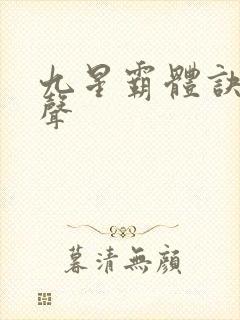 九星霸體訣
聲
暮清無顏